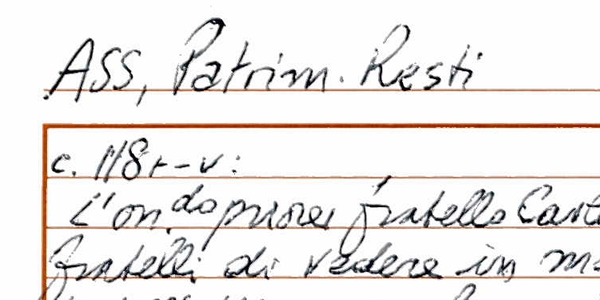 ASS, Patrim. Resti
c. 118r-v:
L'on.do priore fratello
fratelli di vedere in